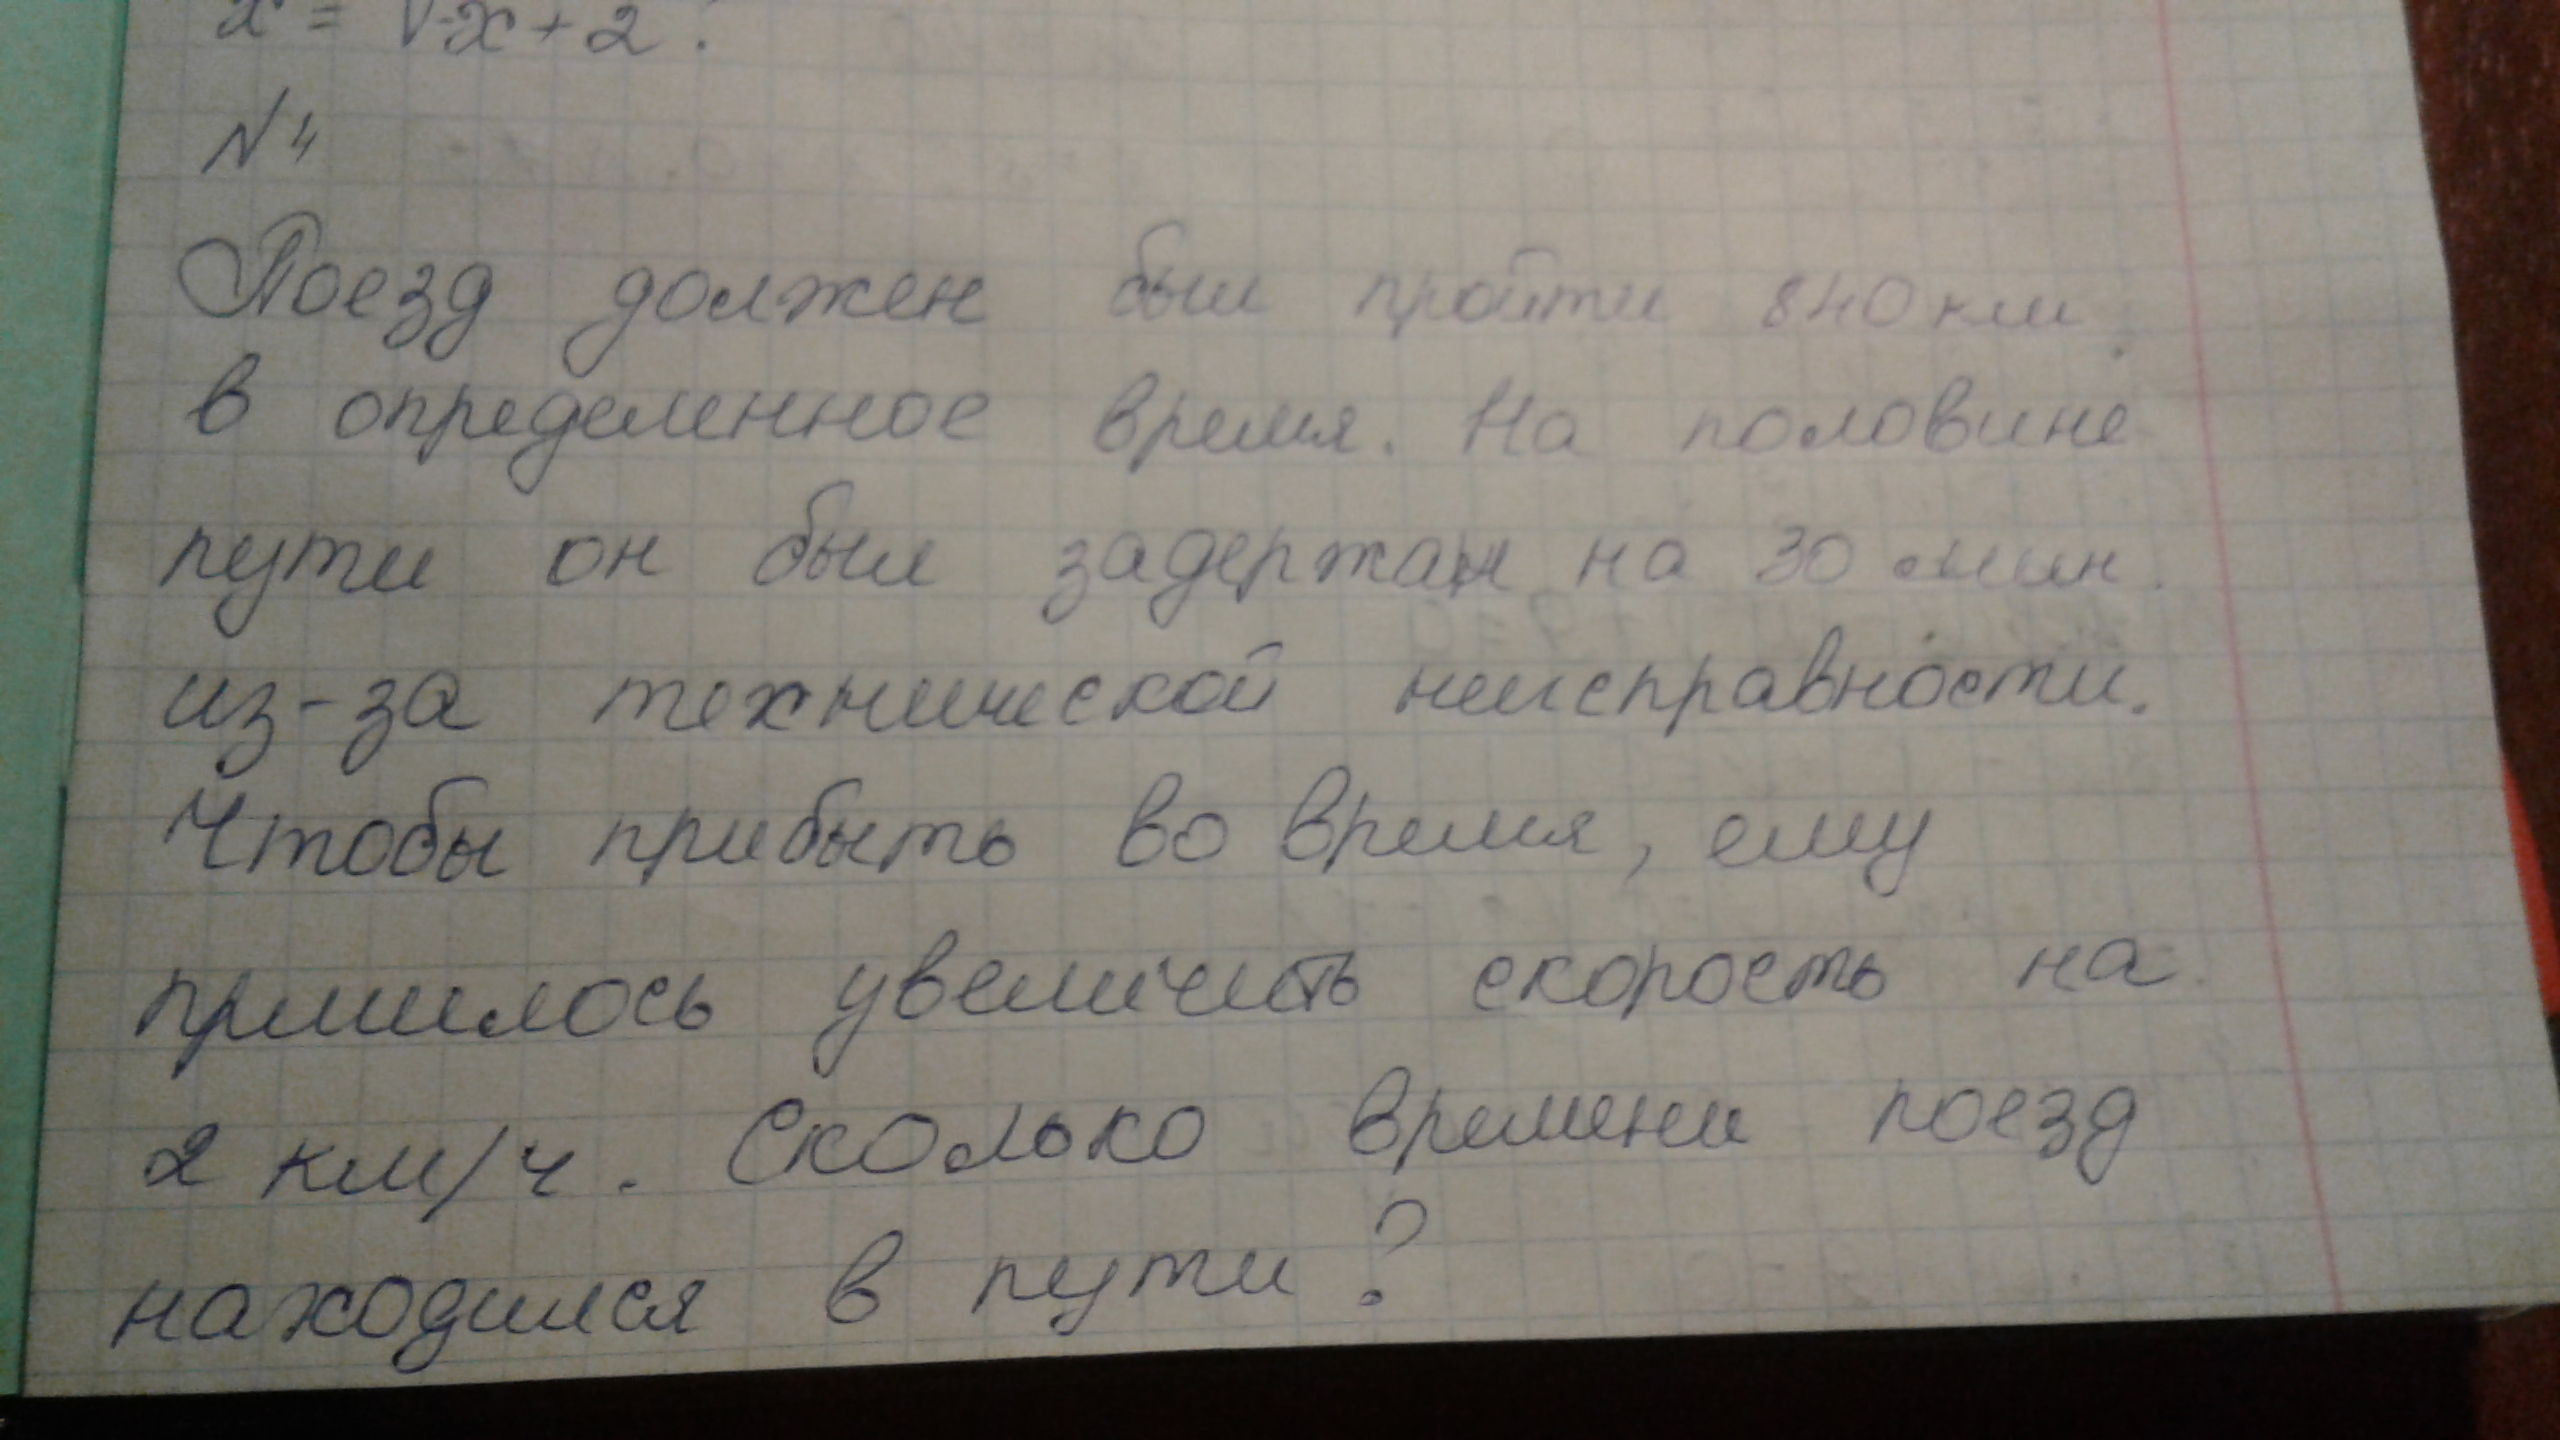 x = √-x+2?
№4
Поезд должен был пройти 840 км
в определенное время. На половине
пути он был задержан на 30 мин.
из-за технической неисправности.
Чтобы прибыть во время, ему
пришлось увеличить скорость на
2 км/ч. Сколько времени поезд
находился в пути?